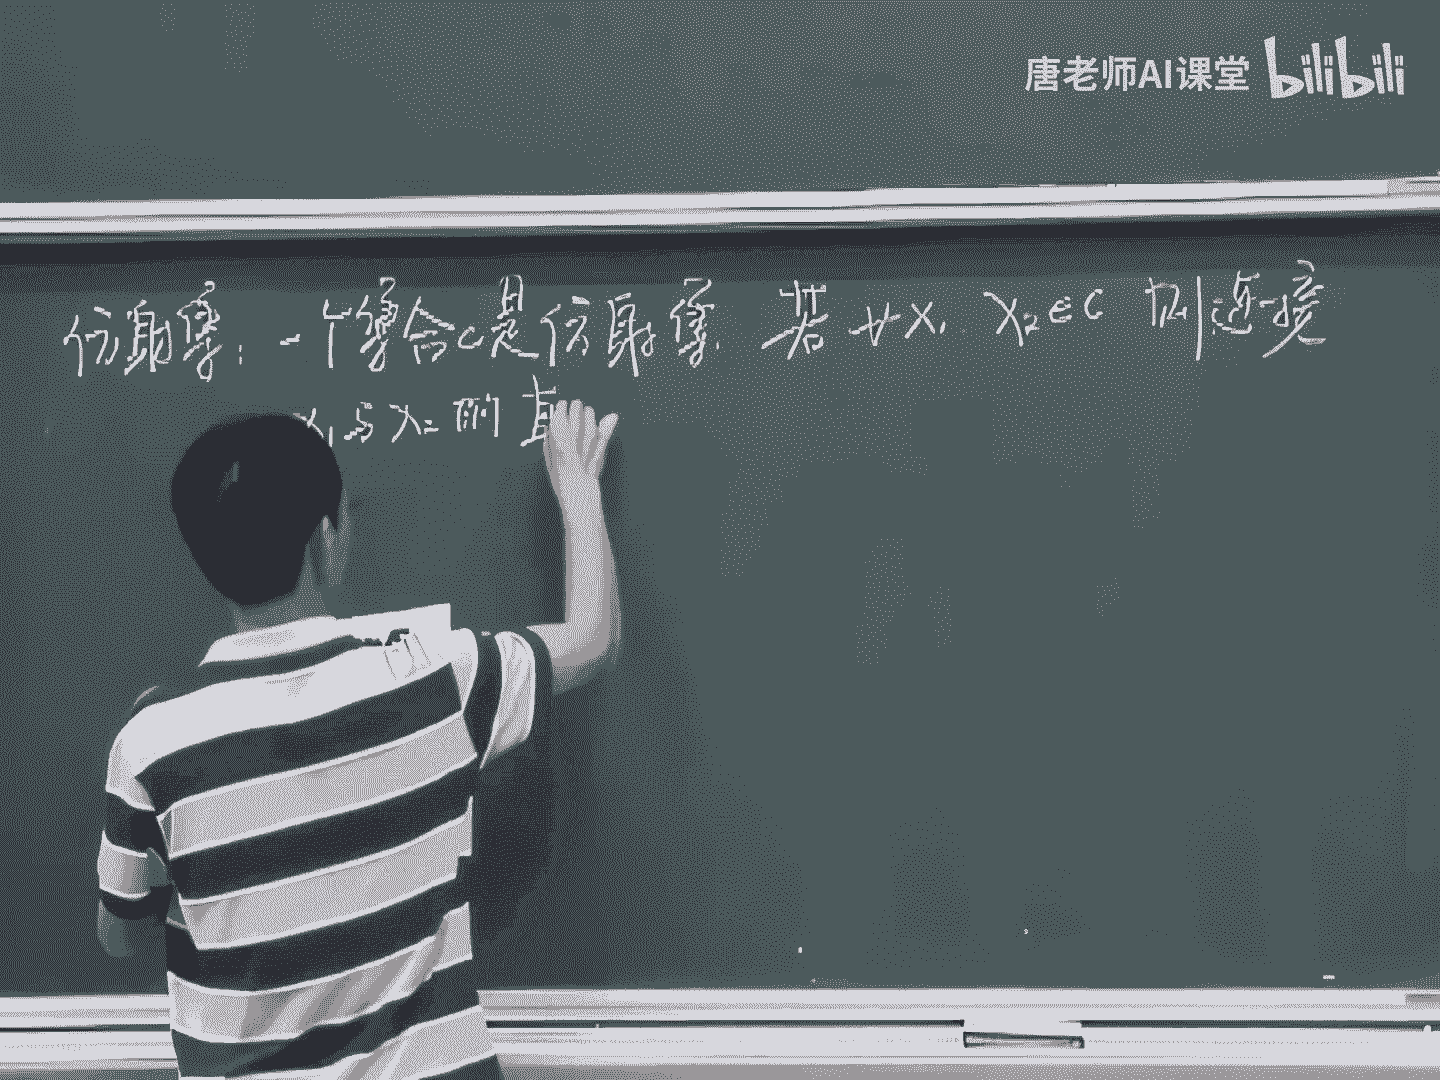 唐老师AI课堂 bilibili
仿射集：一个集合C是仿射集.若∀x₁ x₂∈C 则连接
x₁与x₂的直